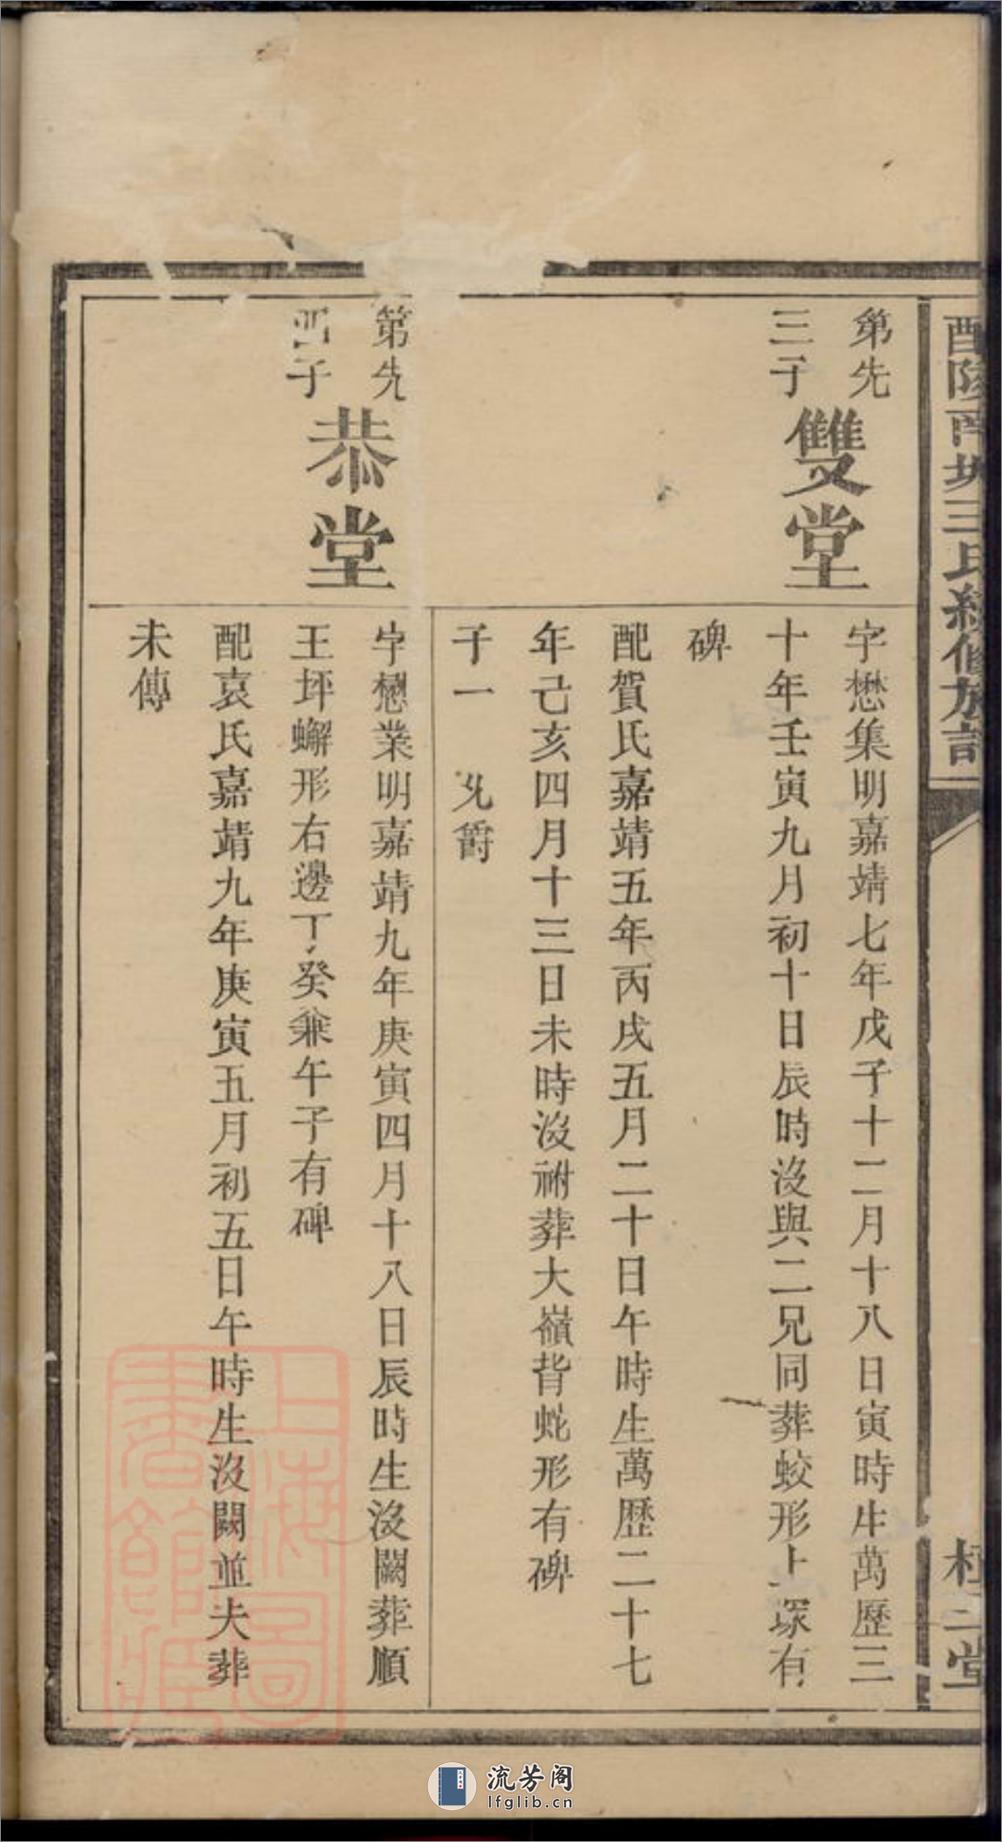 醴陵南城王氏續修族譜
先第三子
雙堂
字懋集明嘉靖七年戊子十二月十八日寅時生萬歷三
十年壬寅九月初十日辰時沒與二兄同葬蛟形上塚有
碑
配賀氏嘉靖五年丙戌五月二十日午時生萬歷二十七
年己亥四月十三日未時沒祔葬大嶺背蛇形有碑
子一 允爵
先第四子
恭堂
字懋業明嘉靖九年庚寅四月十八日辰時生沒闕葬順
王坪蠏形右邊丁癸兼午子有碑
配袁氏嘉靖九年庚寅五月初五日午時生沒闕並夫葬
未傳
上海圖書館藏
流芳阁
lfglib.cn